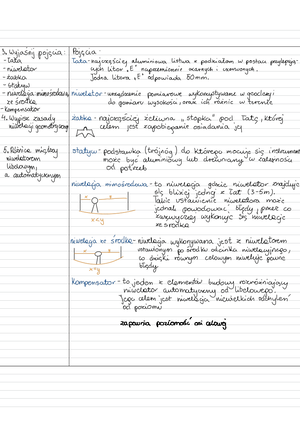 3. Wyjaśnij pojęcia:
- łata
- niwelator
- żabka
- statyw
- niwelacja mimośrodowa
ze środka,
- kompensator
4. Wypisz zasady
niwelacji geometrycznej
5. Różnice między
niwelatorem
libelowym,
a automatycznym
Pojęcia -
Łata - najczęściej aluminiowa listwa z podziałem w postaci przylegają-
cych liter „E" naprzemiennie czarnych i czerwonych.
Jedna litera „E" odpowiada 50mm.
niwelator - urządzenie pomiarowe wykorzystywane w geodezji
do pomiaru wysokości, oraz ich różnic w terenie
żabka - najczęściej żeliwna „stopka" pod łatę, której
celem jest zapobieganie osiadania jej
statyw - podstawka (trójnóg) do którego mocuje się instrument
może być aluminiowy lub drewniany w zależności
od potrzeb
niwelacja mimośrodowa - to niwelacja gdzie niwelator znajduje
się bliżej jednej z łat (3-5m).
Takie ustawienie niwelatora może
jednak powodować błędy, przez co
zazwyczaj wykonuje się niwelację
ze środka
x≠y
niwelacja ze środka - niwelacja wykonywana jest z niwelatorem
ustawionym po środku odcinka niwelacyjnego,
to dzięki równym celowym niweluje pewne
błędy
x=y
kompensator - to jeden z elementów budowy rozróżniający
niwelator automatyczny od libelowego.
Jego celem jest niwelacja niewielkich odchyleń
od poziomu
zapewnia poziomość osi celowej